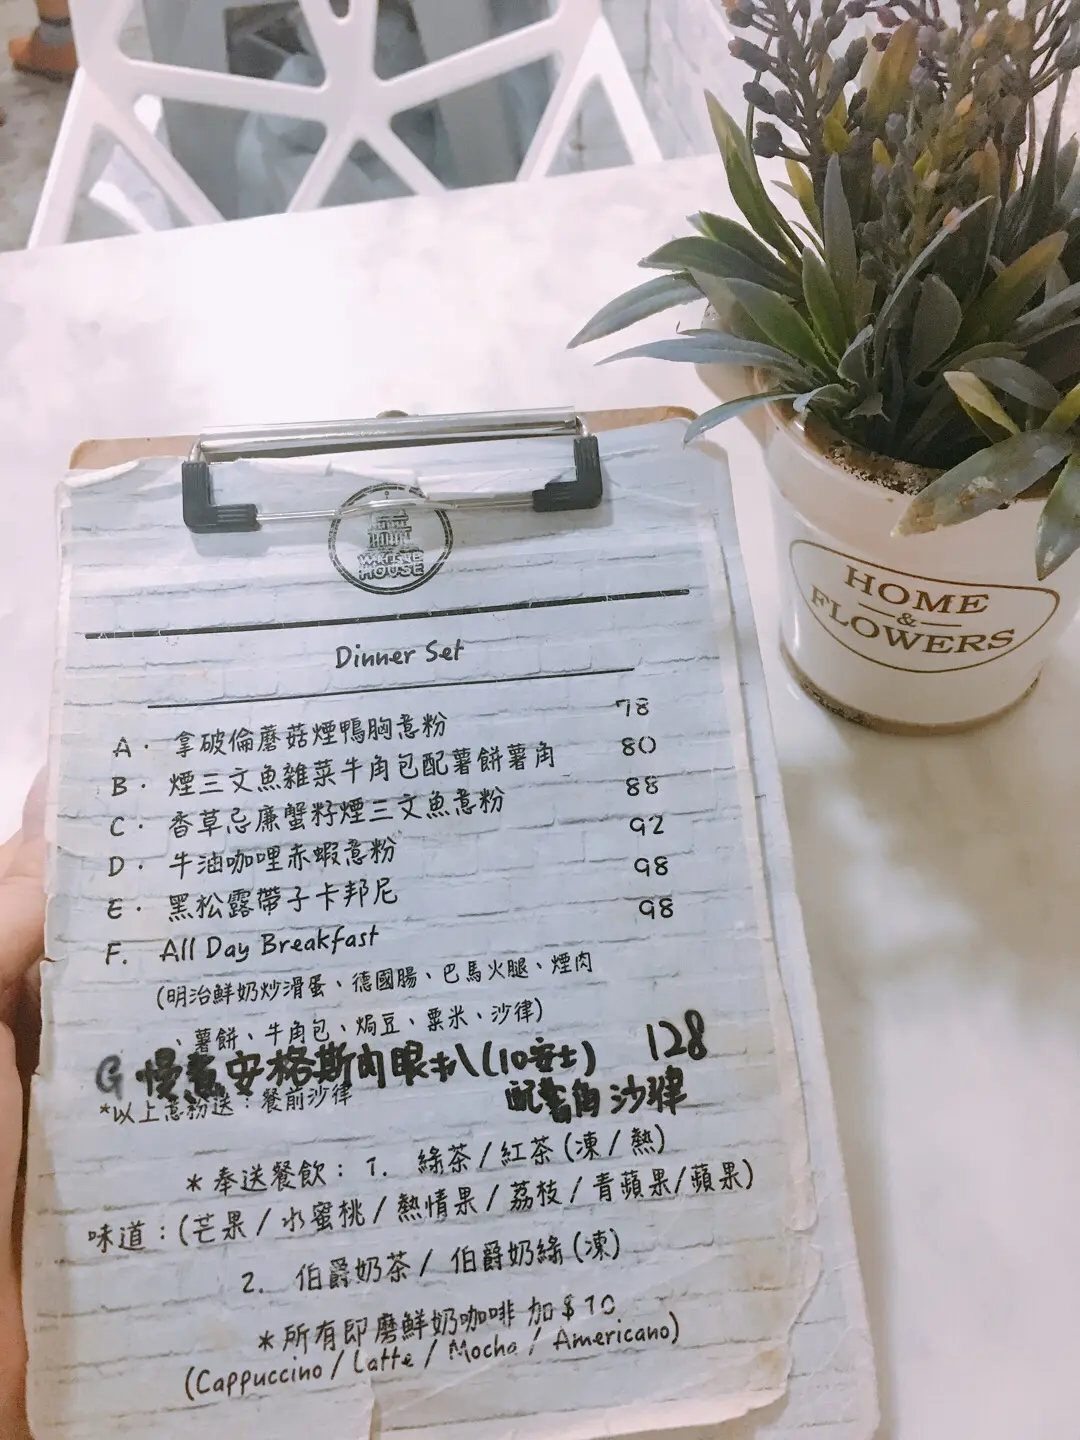 WHITE
HOUSE
Dinner Set
A. 拿破倫蘑菇煙鴨胸意粉 78
B. 煙三文魚雜菜牛角包配薯餅薯角 80
C. 香草忌廉蟹籽煙三文魚意粉 88
D. 牛油咖哩赤蝦意粉 92
E. 黑松露帶子卡邦尼 98
F. All Day Breakfast 98
(明治鮮奶炒滑蛋、德國腸、巴馬火腿、煙肉
、薯餅、牛角包、焗豆、粟米、沙律)
G 慢煮安格斯肉眼扒(10安士) 128
配薯角沙律
*以上意粉送：餐前沙律
*奉送餐飲：1. 綠茶/紅茶(凍/熱)
味道：(芒果/水蜜桃/熱情果/荔枝/青蘋果/蘋果)
2. 伯爵奶茶/伯爵奶綠(凍)
*所有即磨鮮奶咖啡 加$10
(Cappuccino/Latte/Mocha/Americano)
HOME
&
FLOWERS